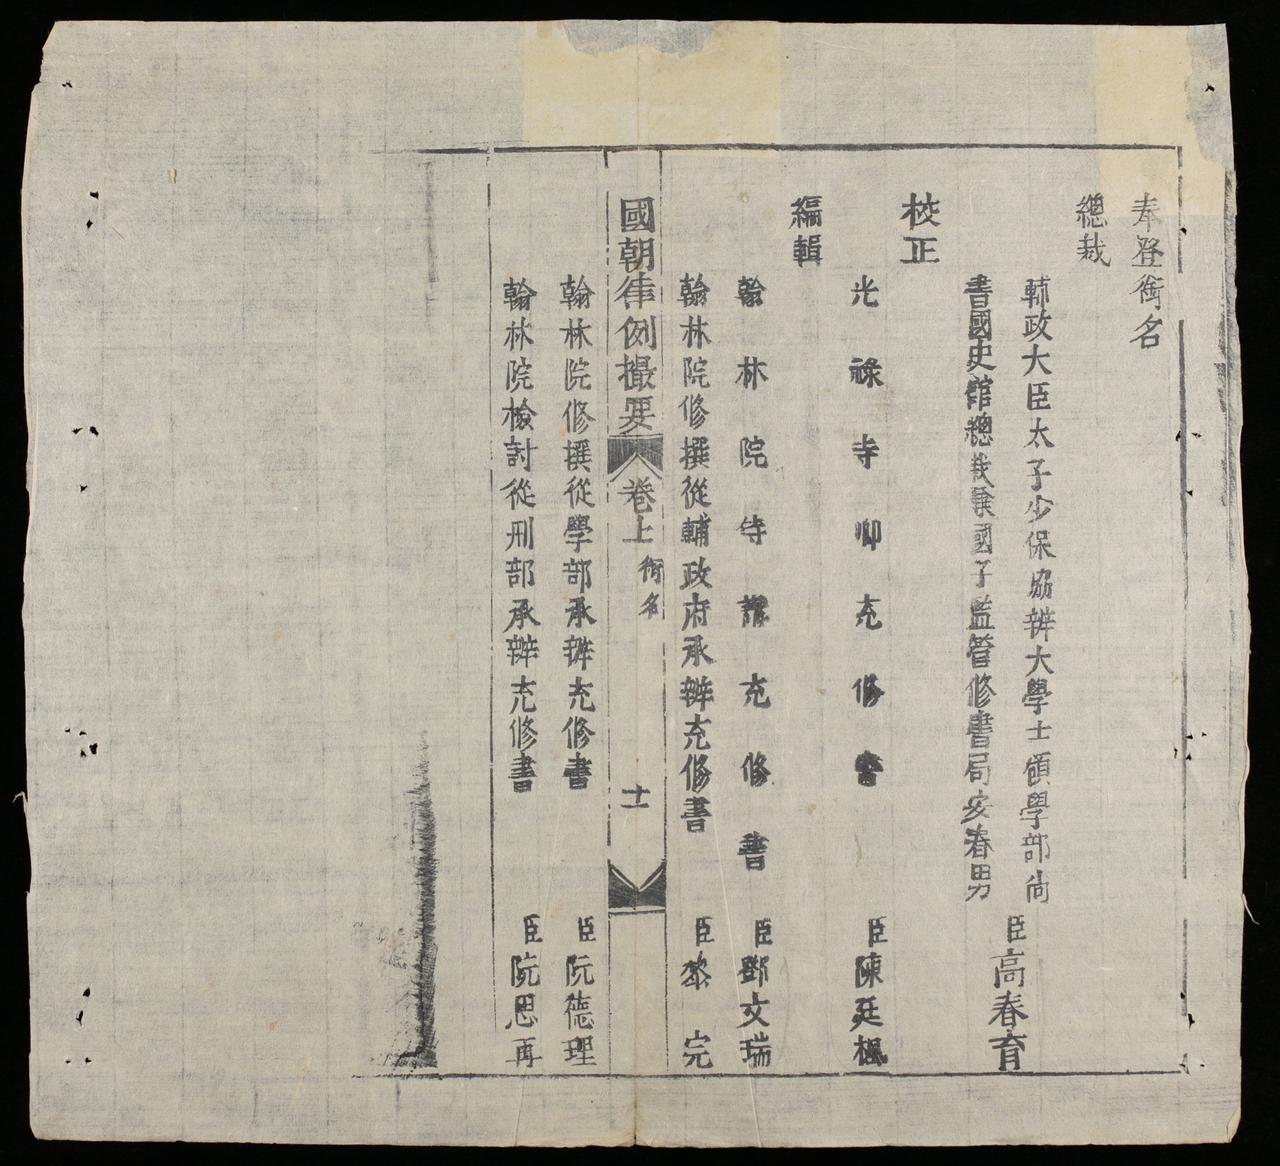 奉登銜名
總裁
輔政大臣太子少保協辦大學士領學部尚
書國史館總裁兼國子監管修書局安春男
臣高春育
校正
光祿寺卿充修書
臣陳廷楓
編輯
翰林院侍講充修書
臣鄧文瑞
翰林院修撰從輔政府承辦充修書
臣黎完
國朝律例撮要
卷上
銜名
十一
翰林院修撰從學部承辦充修書
臣阮德理
翰林院檢討從刑部承辦充修書
臣阮思再